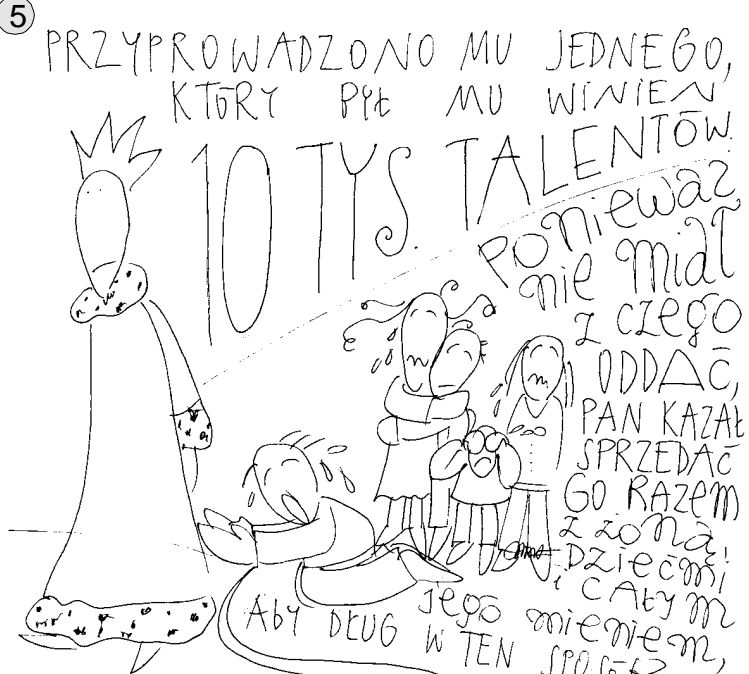 5
PRZYPROWADZONO MU JEDNEGO,
KTÓRY BYŁ MU WINIEN
10 TYS. TALENTÓW.
PONIEWAŻ
nie miał
z czego
ODDAĆ,
PAN KAZAŁ
SPRZEDAĆ
GO RAZEM
z żoną,
DZIEĆMI
i CAŁYM
jego mieniem,
ABY DŁUG W TEN SPOSÓB